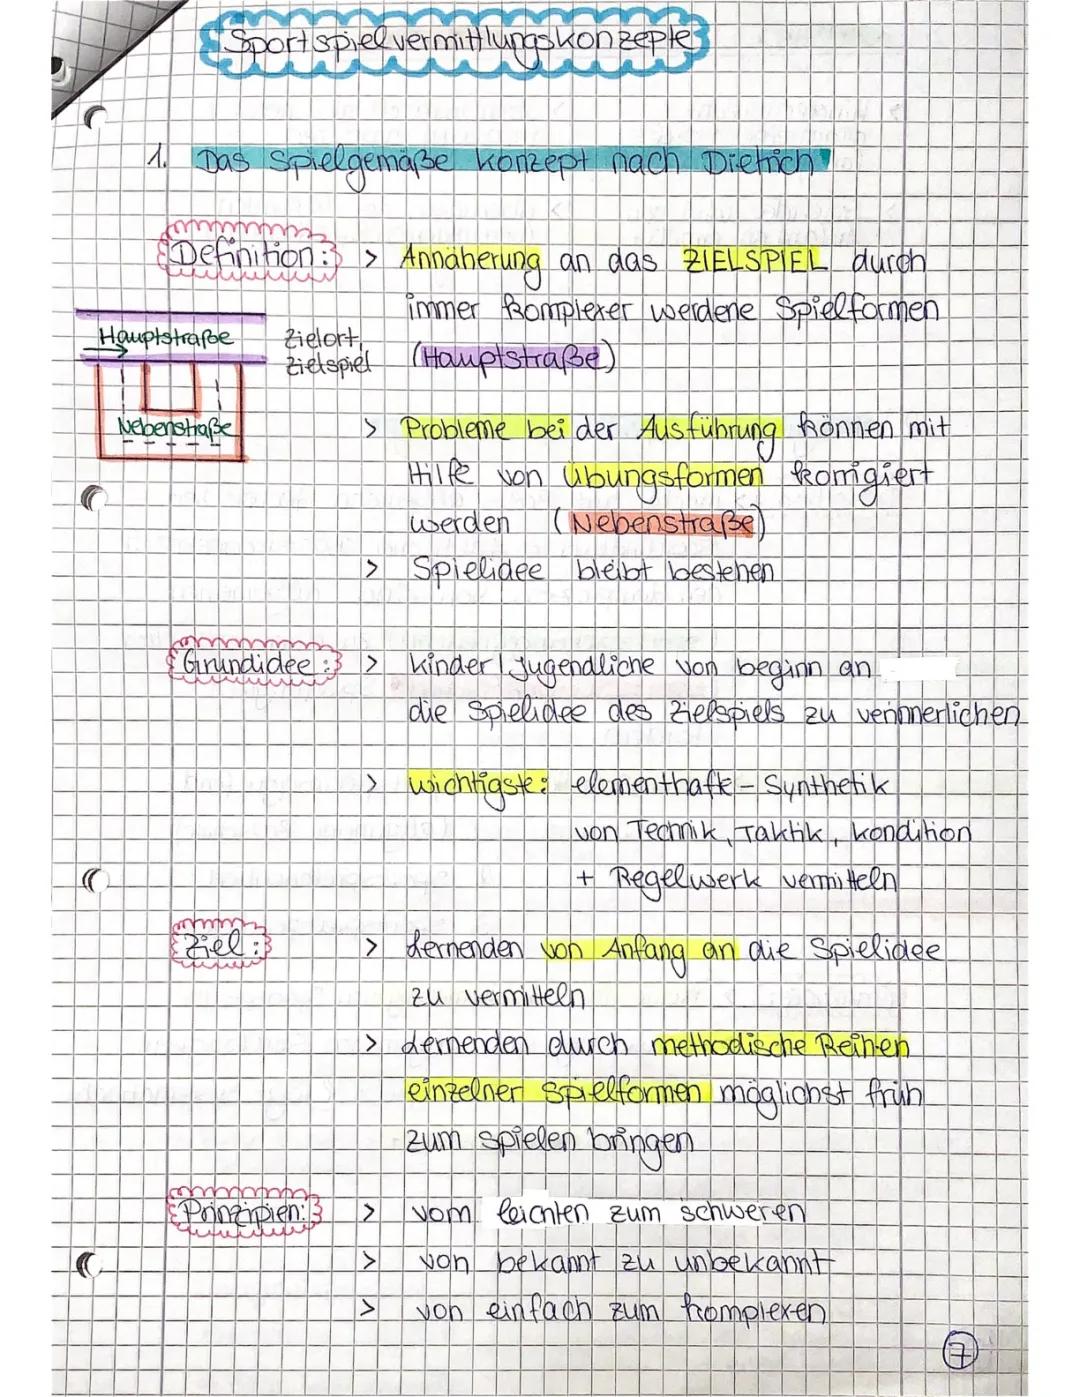 Sportspielvermittlungskonzepte
1. Das Spielgemäße Konzept nach Dietrich
Definition: > Annäherung an das ZIELSPIEL durch
immer komplexer werdene Spielformen
(Hauptstraße)
Hauptstraße
Zielort,
Zielspiel
Nebenstraße
> Probleme bei der Ausführung können mit
Hilfe von Übungsformen korrigiert
werden (Nebenstraße)
> Spielidee bleibt bestehen
Grundidee: > Kinder/Jugendliche von beginn an
die Spielidee des Zielspiels zu verinnerlichen
> wichtigste: elementhaft - Synthetik
von Technik, Taktik, Kondition
+ Regelwerk vermitteln
Ziel: > Lernenden von Anfang an die Spielidee
zu vermitteln
> Lernenden durch methodische Reihen
einzelner Spielformen möglichst früh
zum spielen bringen
Prinzipien: > vom leichten zum schweren
> von bekannt zu unbekannt
> von einfach zum komplexen
7